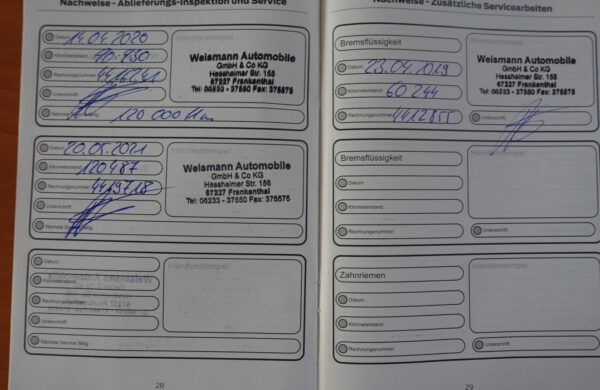 Nachweise - Ablieferungs-Inspektion und Service
Datum: 14.04.2020
Händlerstempel
Kilometerstand:
Rechnungsnummer:
Unterschrift:
Nächste Service fällig: 120 000 Km
Weismann Automobile
GmbH & Co KG
Hessheimer Str. 155
67227 Frankenthal
Tel: 06233 - 37550 Fax: 375575
Datum: 20.05.2021
Händlerstempel
Kilometerstand: 120487
Rechnungsnummer: 4419718
Unterschrift:
Nächste Service fällig:
Weismann Automobile
GmbH & Co KG
Hessheimer Str. 155
67227 Frankenthal
Tel: 06233 - 37550 Fax: 375575
Datum:
Händlerstempel
Kilometerstand:
Rechnungsnummer:
Unterschrift:
Nächste Service fällig:
28
Nachweise - Zusätzliche Servicearbeiten
Bremsflüssigkeit
Händlerstempel
Datum: 23.04.2019
Kilometerstand: 60244
Rechnungsnummer: 4412855
Unterschrift:
Weismann Automobile
GmbH & Co KG
Hessheimer Str. 155
67227 Frankenthal
Tel: 06233 - 37550 Fax: 375575
Bremsflüssigkeit
Händlerstempel
Datum:
Kilometerstand:
Rechnungsnummer:
Unterschrift:
Zahnriemen
Händlerstempel
Datum:
Kilometerstand:
Rechnungsnummer:
Unterschrift:
29